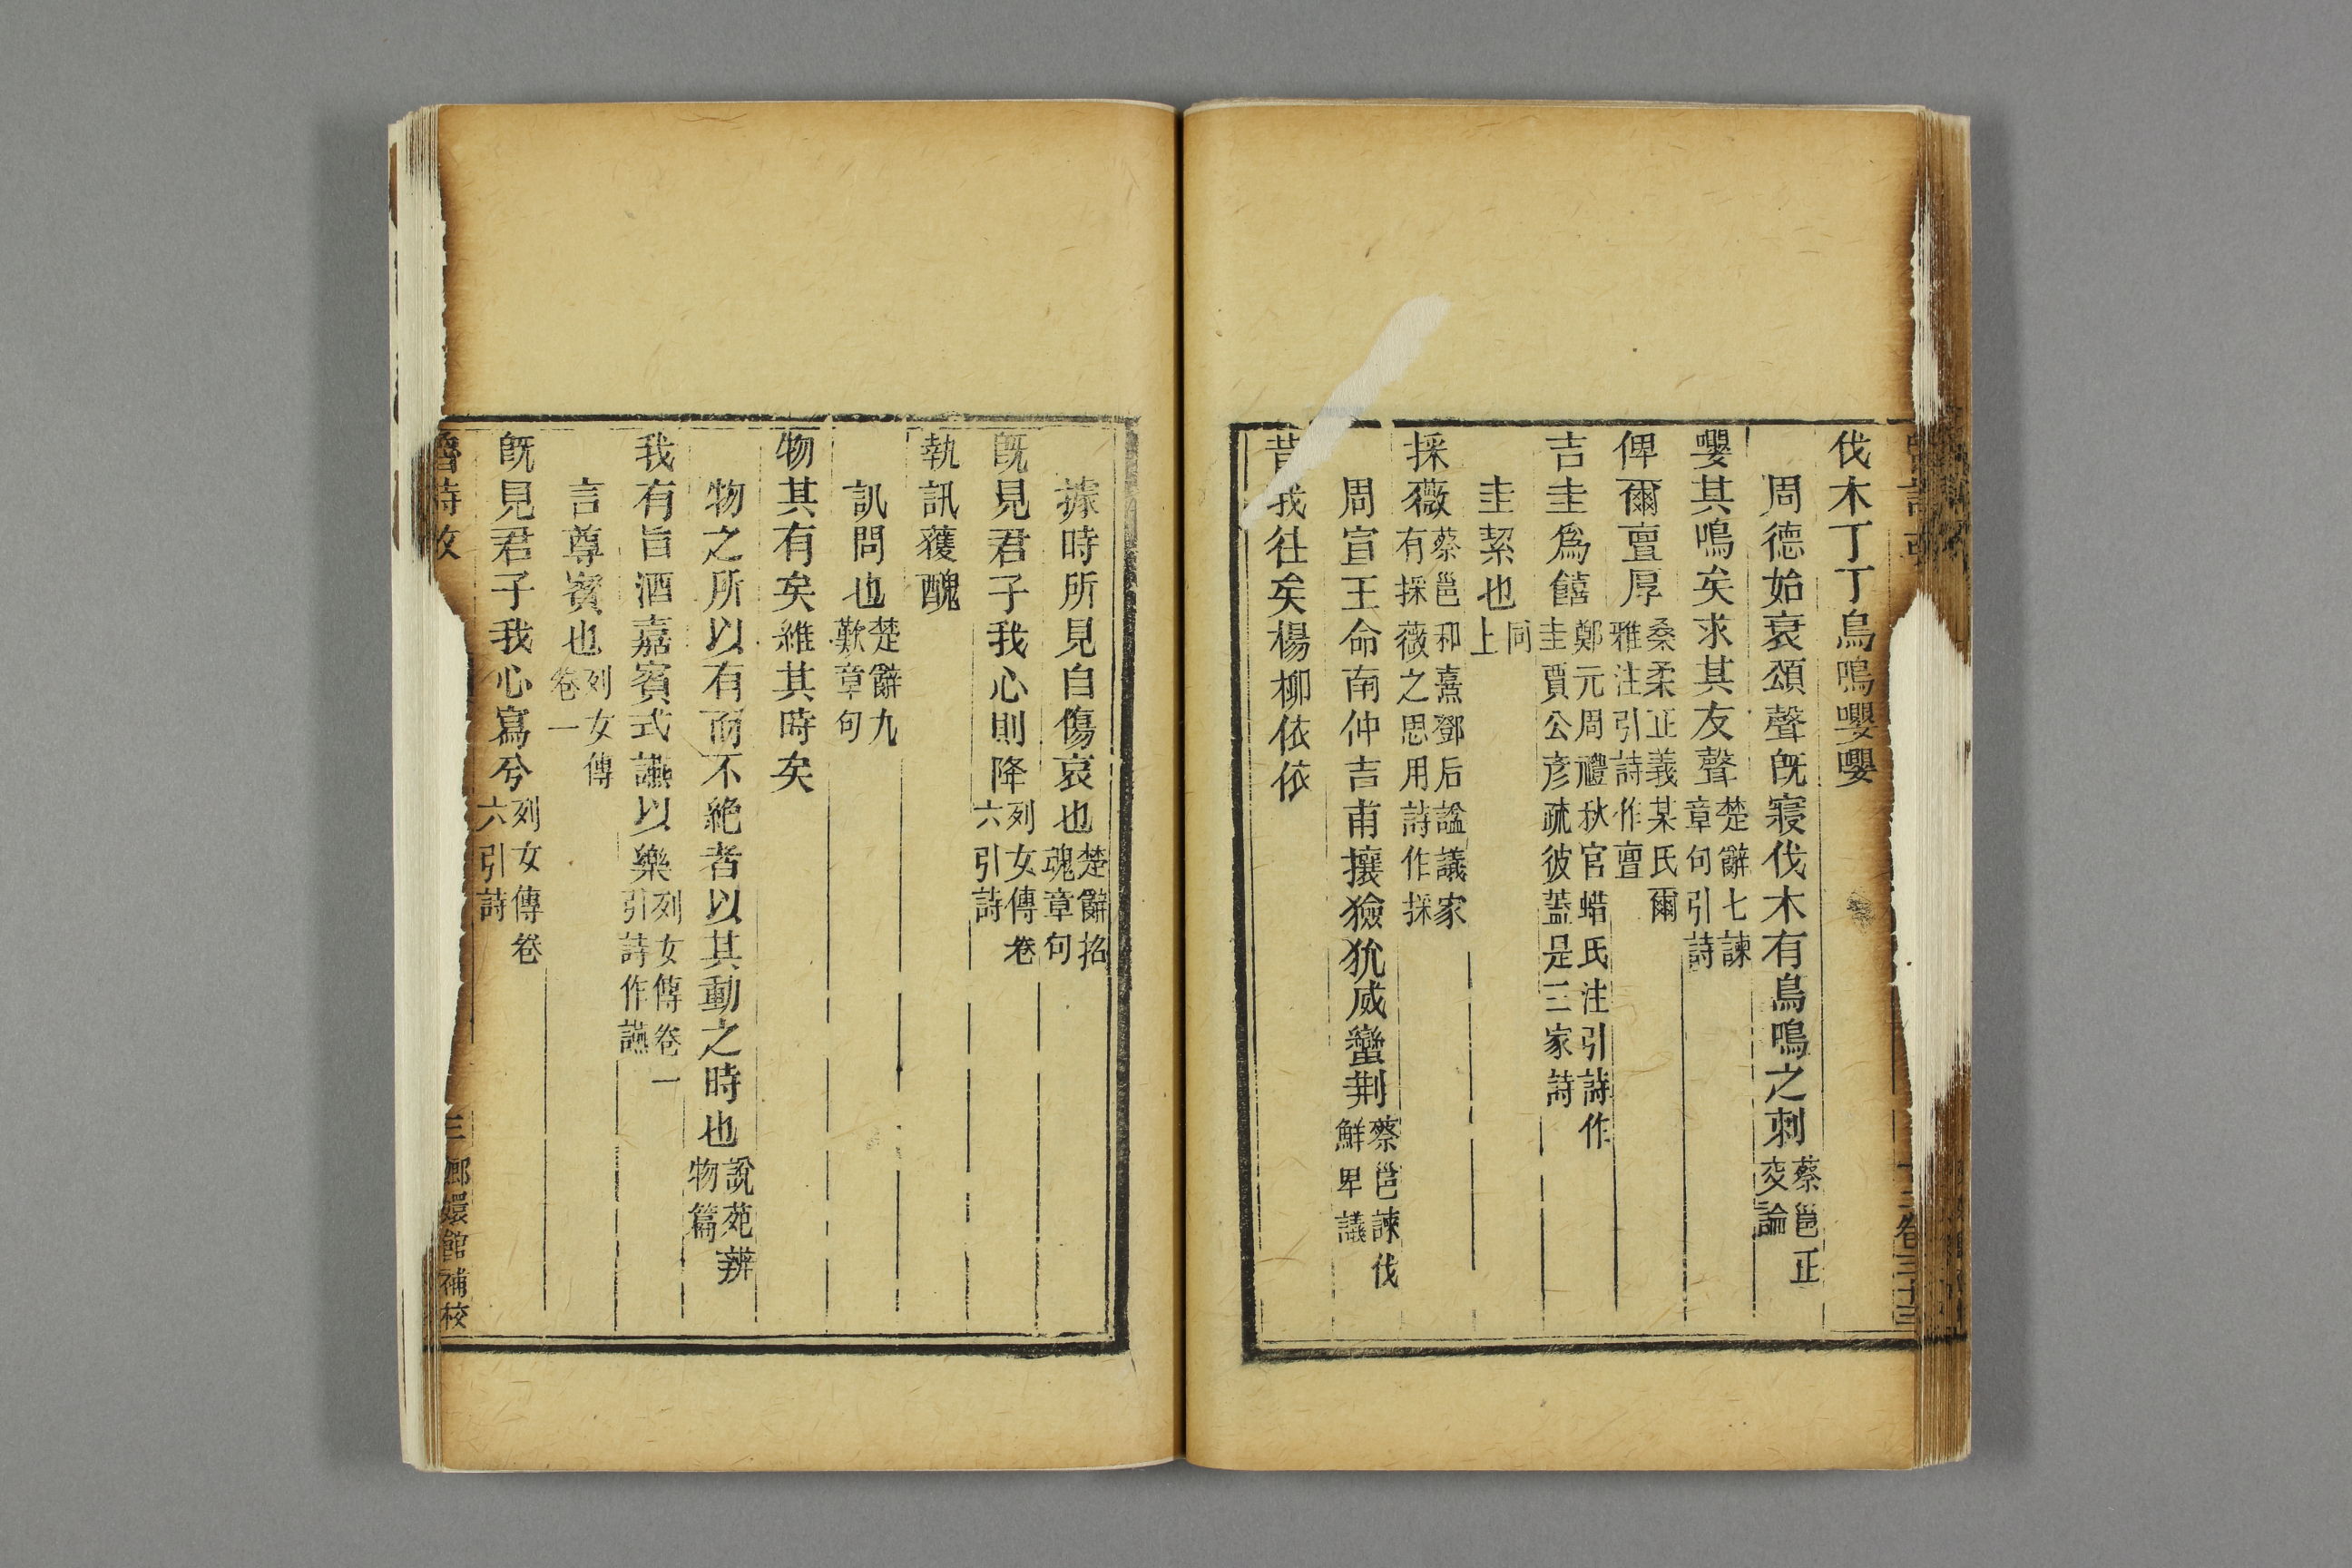 伐木丁丁鳥鳴嚶嚶
周德始衰頌聲旣寢伐木有鳥鳴之刺蔡邕正交論
嚶其鳴矣求其友聲楚辭七諫章句引詩
俾爾亶厚桑柔正義某氏爾雅注引詩作亶
吉圭爲饎鄭元周禮秋官蜡氏注引詩作圭賈公彥疏彼蓋是三家詩
圭絜也同上
採薇蔡邕和熹鄧后謚議家有採薇之思用詩作採
周宣王命南仲吉甫攘獫狁威蠻荆蔡邕諫伐鮮卑議
昔我往矣楊柳依依
據時所見自傷哀也楚辭招魂章句
旣見君子我心則降列女傳卷六引詩
執訊獲醜
訊問也楚辭九歎章句
物其有矣維其時矣
物之所以有而不絶者以其動之時也說苑辨物篇
我有旨酒嘉賓式讌以樂列女傳卷一引詩作讌
言尊賓也列女傳卷一
旣見君子我心寫兮列女傳卷六引詩
魯詩故
三 嫏嬛館補校